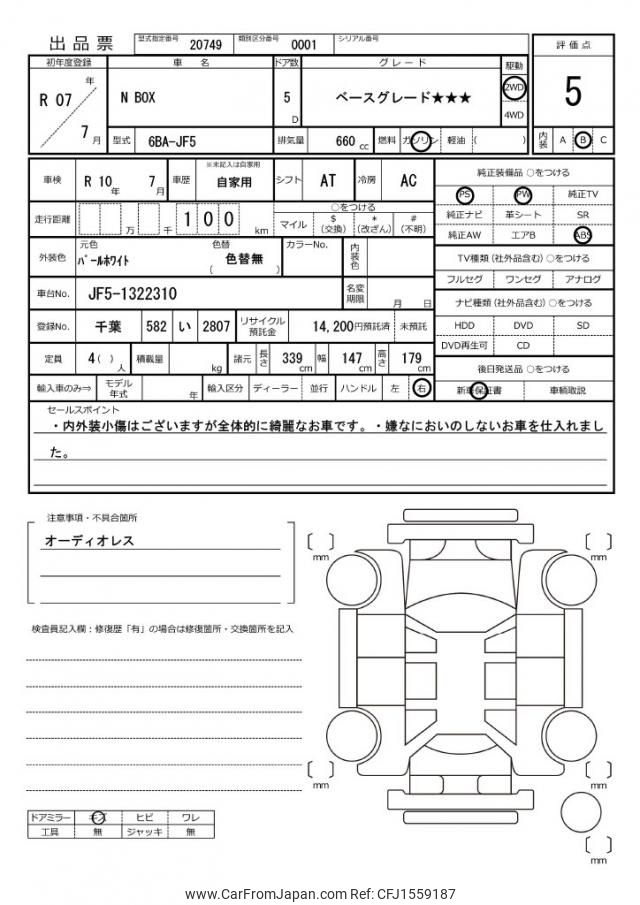 出品票 型式指定番号 20749 類別区分番号 0001 シリアル番号
評価点
5
内装 A B C
初年度登録 車名 ドア数 グレード 駆動
R 07 年 7 月
N BOX 5 D ベースグレード★★★ 2WD 4WD
型式 6BA-JF5 排気量 660 cc 燃料 ガソリン 軽油 ( )
車検 R 10 年 7 月 車歴 ※未記入は自家用 自家用 シフト AT 冷房 AC
走行距離 万 千 1 0 0 km
○をつける
マイル $ (交換) * (改ざん) # (不明)
外装色 元色 パールホワイト 色替 ( 色替無 ) カラーNo. 内装色
車台No. JF5-1322310 名変期限 月 日
登録No. 千葉 582 い 2807 リサイクル預託金 14,200 円預託済 未預託
定員 4 ( ) 人 積載量 kg 諸元 長さ 339 cm 幅 147 cm 高さ 179 cm
輸入車のみ⇒ モデル年式 年 輸入区分 ディーラー 並行 ハンドル 左 右
純正装備品 ○をつける
PS PW 純正TV
純正ナビ 革シート SR
純正AW エアB ABS
TV種類 (社外品含む) ○をつける
フルセグ ワンセグ アナログ
ナビ種類 (社外品含む) ○をつける
HDD DVD SD
DVD再生可 CD
後日発送品 ○をつける
新車保証書 車輌取説
セールスポイント
・内外装小傷はございますが全体的に綺麗なお車です。・嫌なにおいのしないお車を仕入れまし
た。
注意事項・不具合箇所
オーディオレス
検査員記入欄：修復歴「有」の場合は修復箇所・交換箇所を記入
mm
mm
mm
mm
mm
ドアミラー キズ ヒビ ワレ
工具 無 ジャッキ 無
www.CarFromJapan.com Ref: CFJ1559187